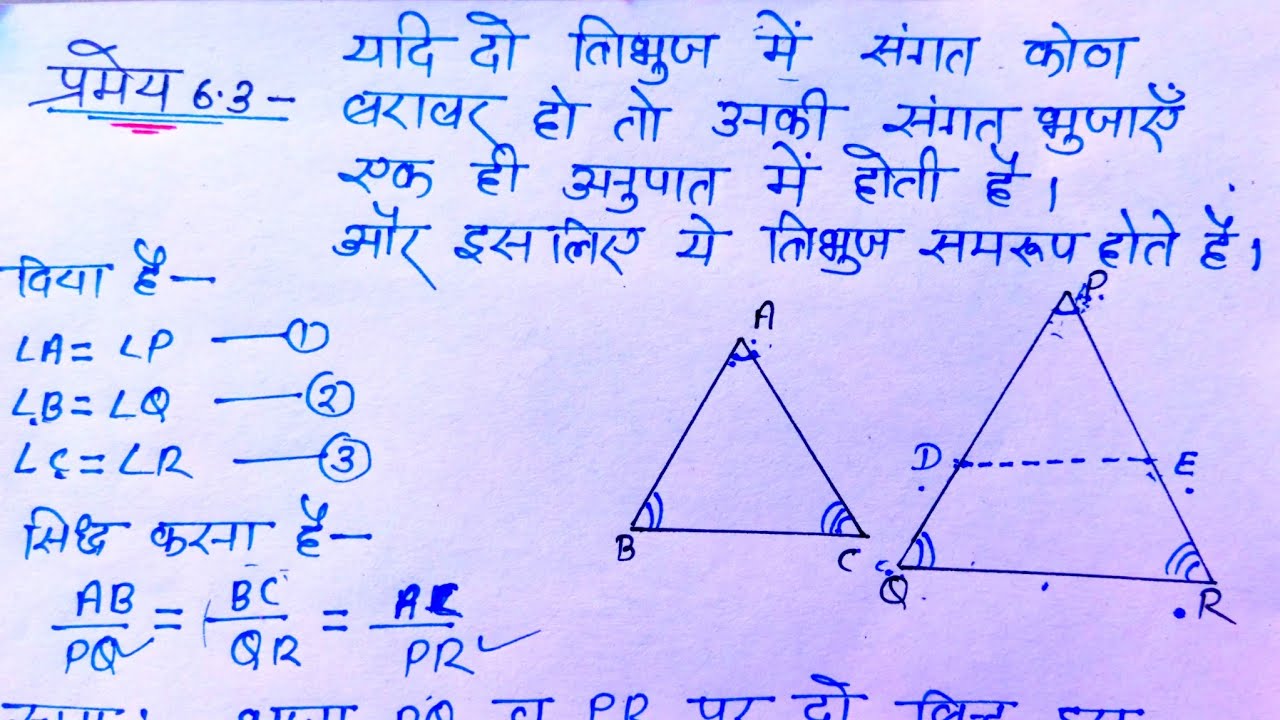 प्रमेय 6.3 - यदि दो त्रिभुज में संगत कोण
बराबर हो तो उनकी संगत भुजाएँ
एक ही अनुपात में होती है।
और इसलिए ये त्रिभुज समरूप होते है।
दिया है -
∠A = ∠P — ①
∠B = ∠Q — ②
∠C = ∠R — ③
सिध्द करना है -
AB/PQ = BC/QR = AC/PR
A
B
C
P
D
E
Q
R
PQ व PR पर दो